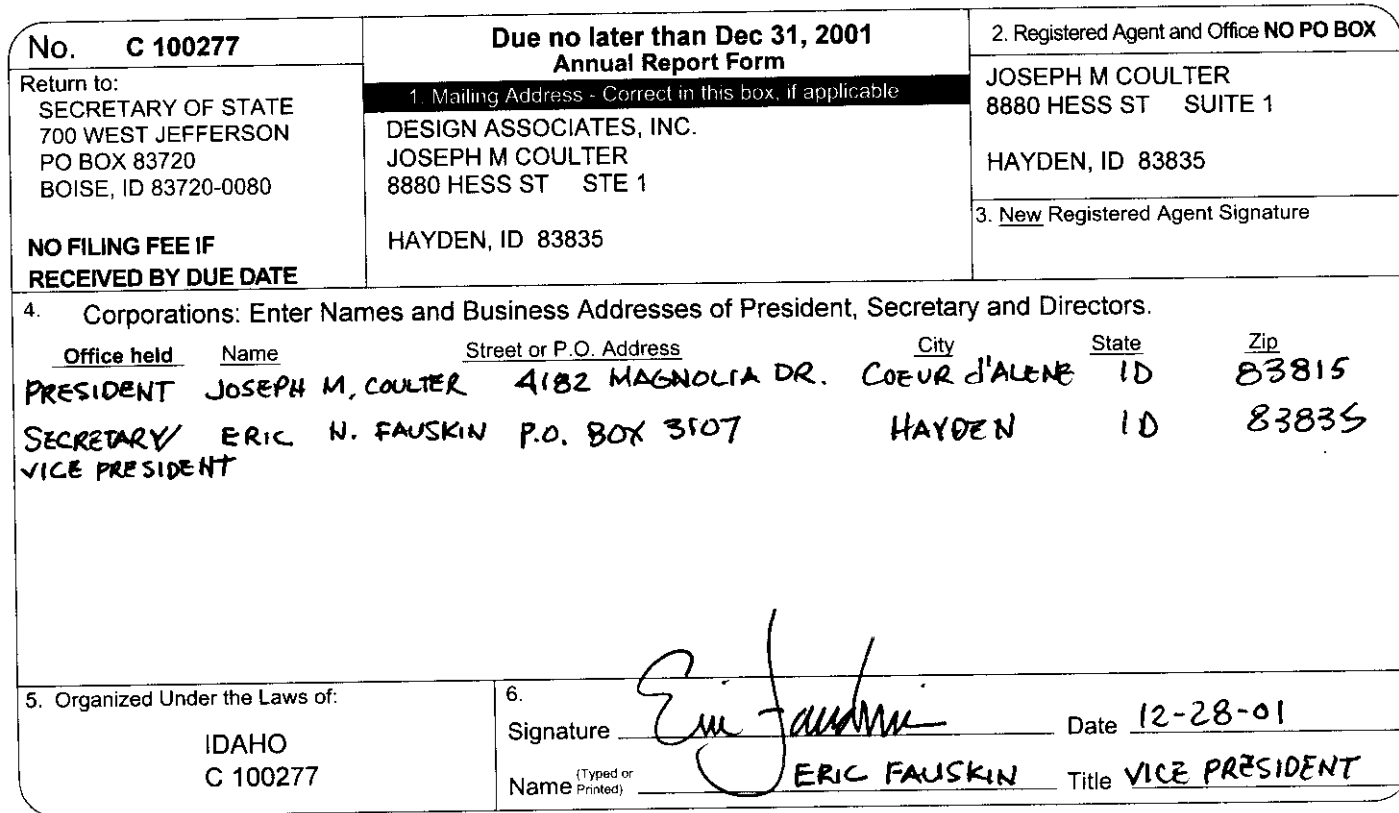 No. C 100277
Return to:
SECRETARY OF STATE
700 WEST JEFFERSON
PO BOX 83720
BOISE, ID 83720-0080
NO FILING FEE IF
RECEIVED BY DUE DATE
Due no later than Dec 31, 2001
Annual Report Form
1. Mailing Address - Correct in this box, if applicable
DESIGN ASSOCIATES, INC.
JOSEPH M COULTER
8880 HESS ST STE 1
HAYDEN, ID 83835
2. Registered Agent and Office NO PO BOX
JOSEPH M COULTER
8880 HESS ST SUITE 1
HAYDEN, ID 83835
3. New Registered Agent Signature
4. Corporations: Enter Names and Business Addresses of President, Secretary and Directors.
Office held Name Street or P.O. Address City State Zip
PRESIDENT JOSEPH M. COULTER 4182 MAGNOLIA DR. COEUR d'ALENE ID 83815
SECRETARY/ ERIC N. FAUSKIN P.O. BOX 3507 HAYDEN ID 83835
VICE PRESIDENT
5. Organized Under the Laws of:
IDAHO
C 100277
6.
Signature Eric Fauskin Date 12-28-01
Name (Typed or Printed) ERIC FAUSKIN Title VICE PRESIDENT